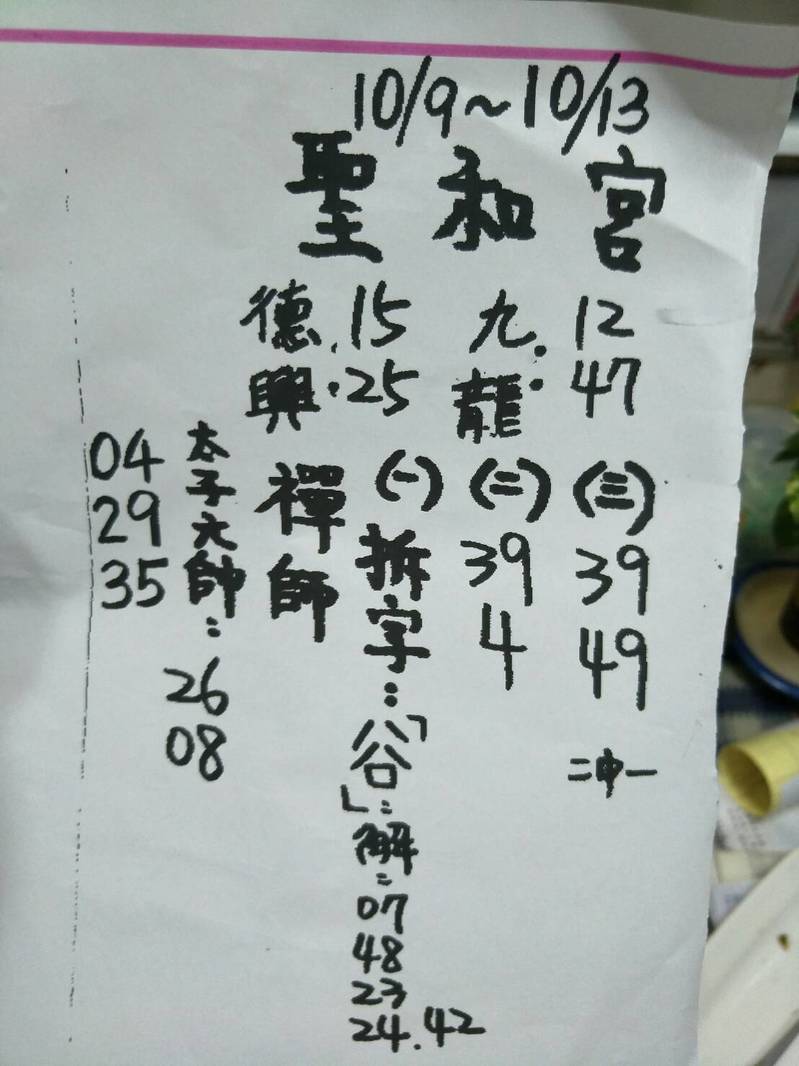 10/9~10/13
聖和宮
九龍:12 47
德興:15 25
禪師
(三)39 49
二中一
(二)39 4
(一)拆字:「谷」:解:07 48 23 24.42
太子元帥:26 08
04 29 35